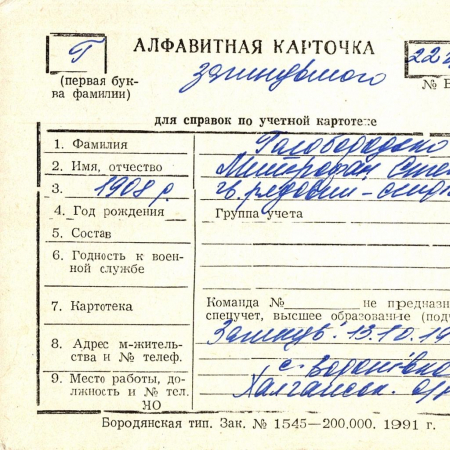 Г АЛФАВИТНАЯ КАРТОЧКА 22
(первая бук- загинувшого № В
ва фамилии)
для справок по учетной картотеке
1. Фамилия Голобородько
2. Имя, отчество Митрофан
3. 1908 р. гв. рядовий –
4. Год рождения Группа учета
5. Состав
6. Годность к воен-
ной службе
7. Картотека Команда № не предназна
спецучет, высшее образование (подч
8. Адрес м-житель- Загинув: 13.10.19
ства и № телеф. с.
9. Место работы, до-
лжность и № тел.
ЧО
Бородянская тип. Зак. № 1545—200.000. 1991 г.